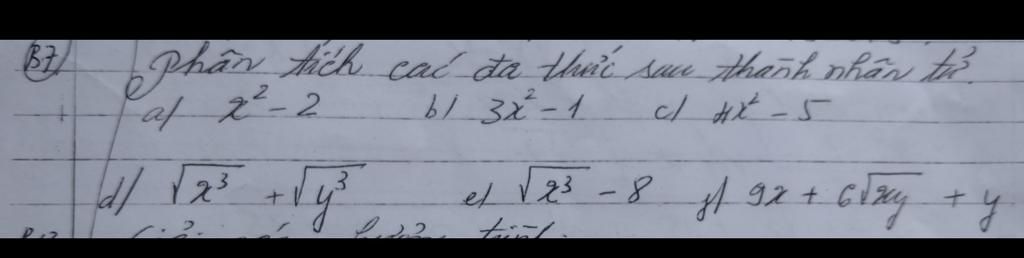 B7) Phân tích các đa thức sau thành nhân tử.
a) x² - 2 b) 3x² - 1 c) 4x² - 5
d) √x³ + √y³ e) √x³ - 8 f) 9x + 6√xy + y